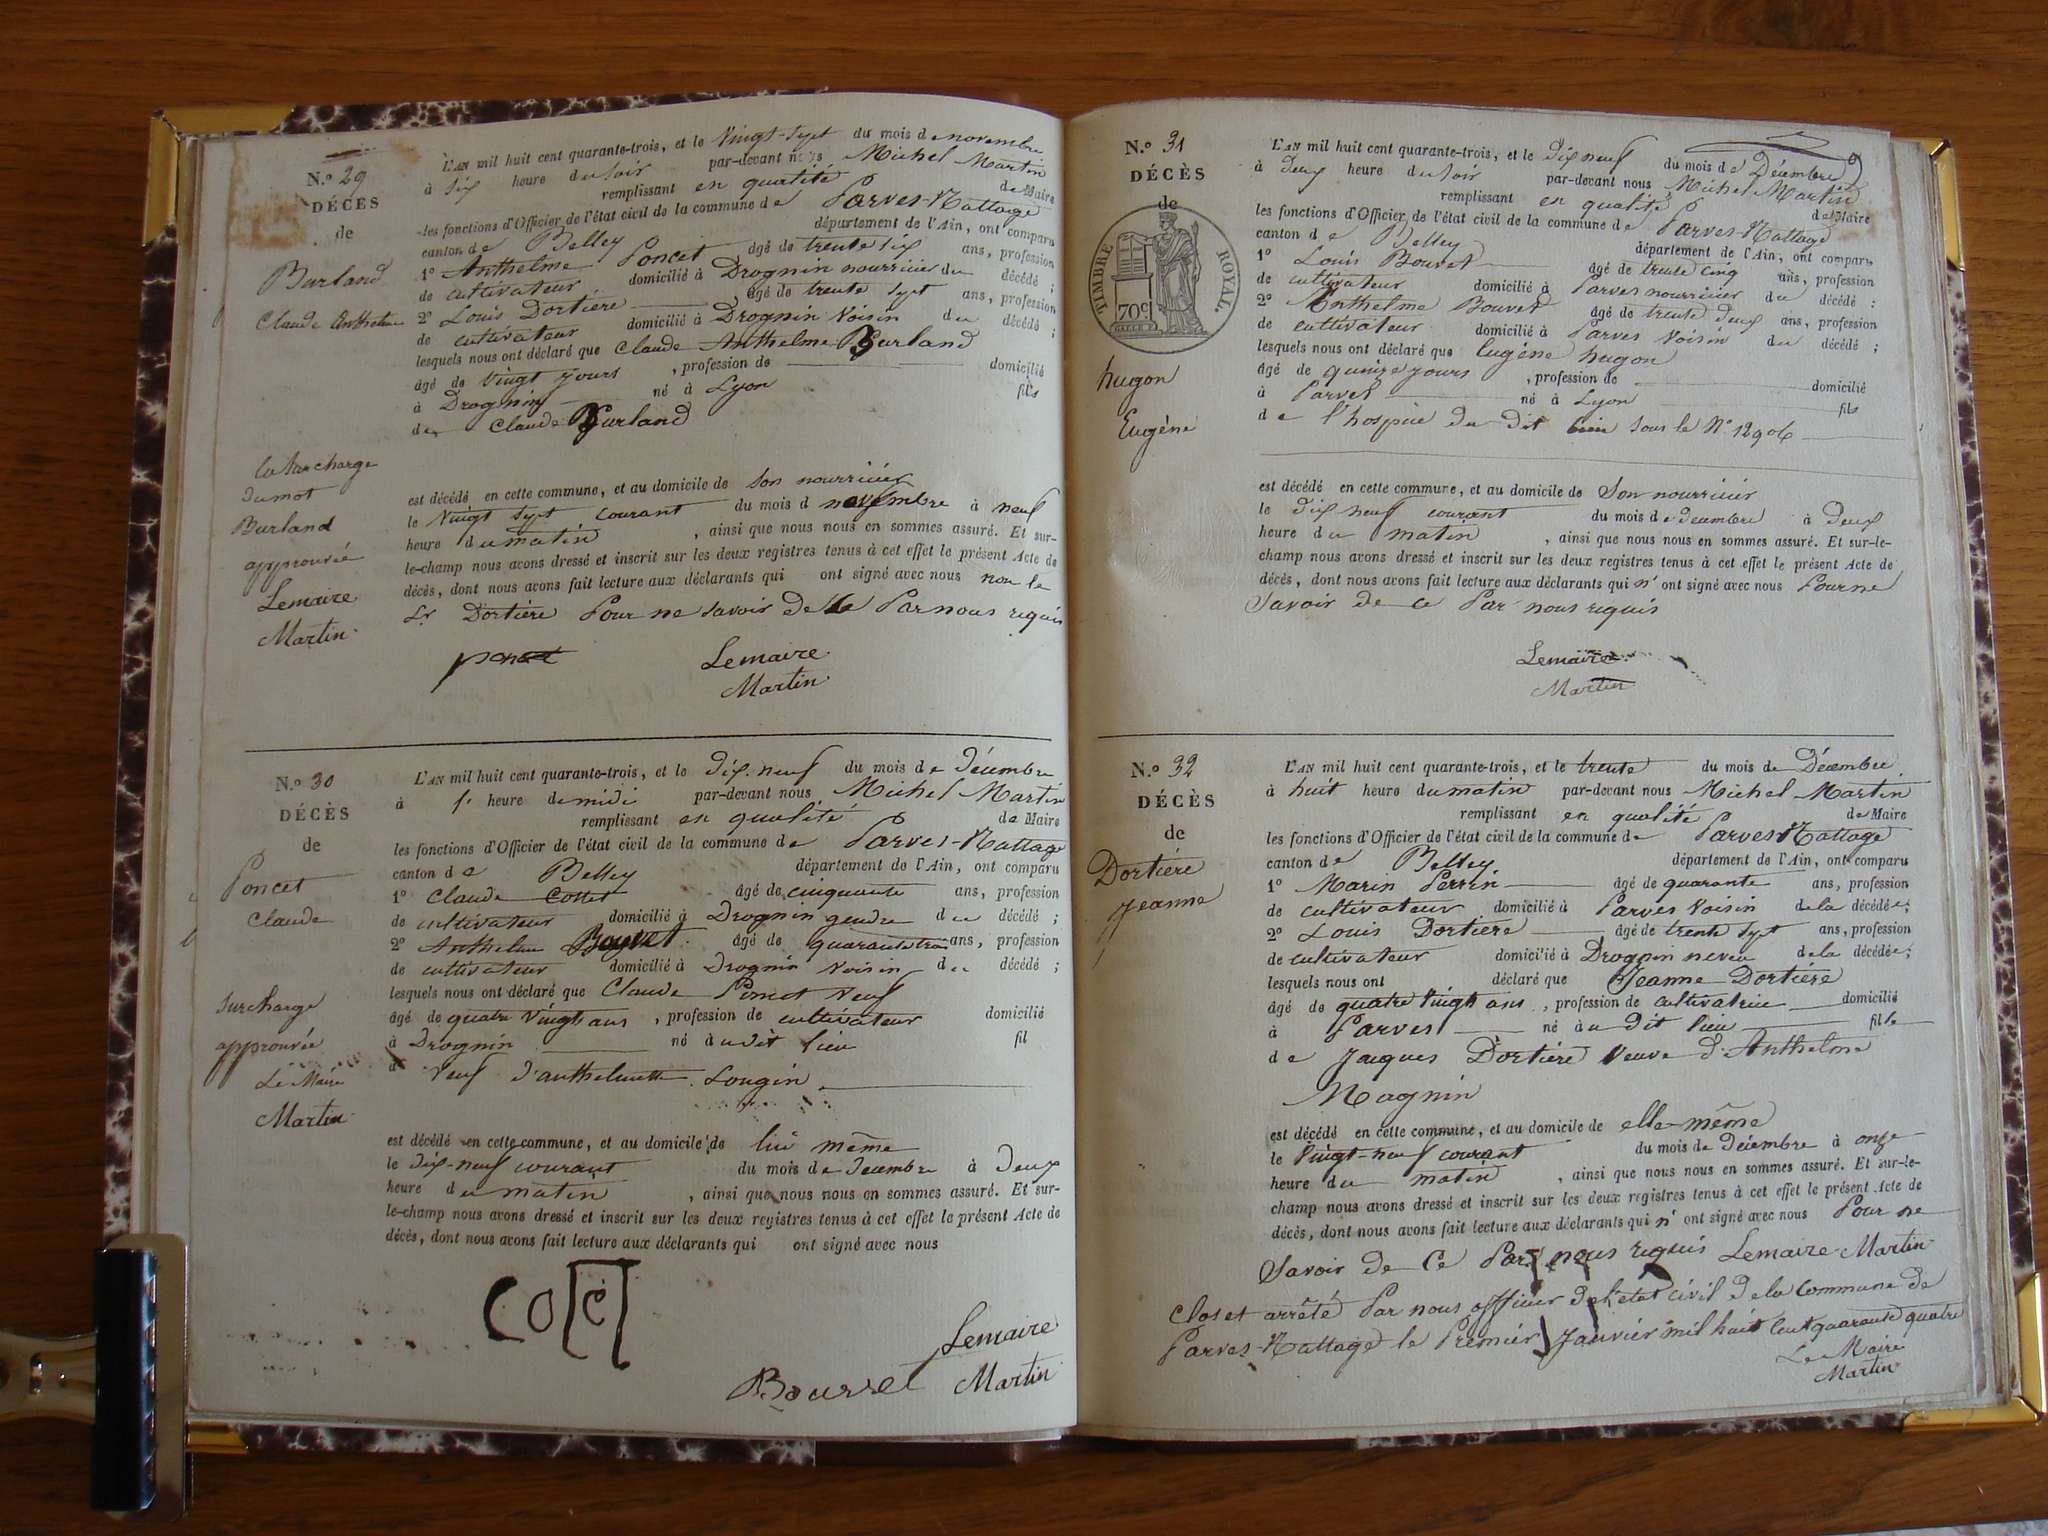 N.o 29
DÉCÈS
de
Burland
Claude Anthelme
L'AN mil huit cent quarante-trois, et le Vingt-sept du mois de novembre
à six heure du soir par-devant nous Michel Martin
remplissant en qualité de Maire
les fonctions d'Officier de l'état civil de la commune de Parves-Nattage
canton de Belley département de l'Ain, ont comparu
1o Anthelme Poncet âgé de trente six ans, profession
de cultivateur domicilié à Drognin nourricier du décédé ;
2o Louis Dortière âgé de trente sept ans, profession
de cultivateur domicilié à Drognin Voisin du décédé ;
lesquels nous ont déclaré que Claude Anthelme Burland
âgé de vingt jours , profession de domicilié
à Drognin né à Lyon fils
de Claude Burland
la surcharge
du mot
Burland
approuvée
Lemaire
Martin
est décédé en cette commune, et au domicile de son nourricier
le Vingt sept courant du mois d novembre à neuf
heure du matin , ainsi que nous nous en sommes assuré. Et sur-
le-champ nous avons dressé et inscrit sur les deux registres tenus à cet effet le présent Acte de
décès, dont nous avons fait lecture aux déclarants qui ont signé avec nous non le
Sr Dortière Pour ne savoir de ce Par nous requis
poncet Lemaire
Martin
N.o 30
DÉCÈS
de
Poncet
Claude
L'AN mil huit cent quarante-trois, et le dix-neuf du mois de décembre
à 1e heure de midi par-devant nous Michel Martin
remplissant en qualité de Maire
les fonctions d'Officier de l'état civil de la commune de Parves-Nattage
canton de Belley département de l'Ain, ont comparu
1o Claude Cottet âgé de cinquante ans, profession
de cultivateur domicilié à Drognin gendre du décédé ;
2o Anthelme Bouvet âgé de quarante trois ans, profession
de cultivateur domicilié à Drognin Voisin du décédé ;
lesquels nous ont déclaré que Claude Poncet Veuf
âgé de quatre vingts ans , profession de cultivateur domicilié
à Drognin né à u dit lieu fil
d Veuf d'anthelmette Longin
surcharge
approuvée
Le Maire
Martin
est décédé en cette commune, et au domicile de lui même
le dix-neuf courant du mois de décembre à deux
heure du matin , ainsi que nous nous en sommes assuré. Et sur-
le-champ nous avons dressé et inscrit sur les deux registres tenus à cet effet le présent Acte de
décès, dont nous avons fait lecture aux déclarants qui ont signé avec nous
Lemaire
Bouvet Martin
N.o 31
DÉCÈS
de
TIMBRE ROYAL.
70c
hugon
Eugène
L'AN mil huit cent quarante-trois, et le dix neuf du mois de Décembre
à deux heure du soir par-devant nous Michel Martin
remplissant en qualité de Maire
les fonctions d'Officier de l'état civil de la commune de Parves-Nattage
canton de Belley département de l'Ain, ont comparu
1o Louis Bouvet âgé de trente cinq ans, profession
de cultivateur domicilié à Parves nourricier du décédé ;
2o Anthelme Bouvet âgé de trente deux ans, profession
de cultivateur domicilié à Parves Voisin du décédé ;
lesquels nous ont déclaré que Eugène hugon
âgé de quinze jours , profession de domicilié
à Parves né à Lyon fils
de l'hospice du dit lieu sous le No 12906
est décédé en cette commune, et au domicile de Son nourricier
le dix neuf courant du mois de décembre à deux
heure du matin , ainsi que nous nous en sommes assuré. Et sur-le-
champ nous avons dressé et inscrit sur les deux registres tenus à cet effet le présent Acte de
décès, dont nous avons fait lecture aux déclarants qui n'ont signé avec nous Pour ne
Savoir de ce Par nous requis
Lemaire
Martin
N.o 32
DÉCÈS
de
Dortière
Jeanne
L'AN mil huit cent quarante-trois, et le trente du mois de Décembre
à huit heure du matin par-devant nous Michel Martin
remplissant en qualité de Maire
les fonctions d'Officier de l'état civil de la commune de Parves-Nattage
canton de Belley département de l'Ain, ont comparu
1o Marin Perrin âgé de quarante ans, profession
de cultivateur domicilié à Parves Voisin de la décédée ;
2o Louis Dortière âgé de trente sept ans, profession
de cultivateur domicilié à Drognin neveu de la décédée ;
lesquels nous ont déclaré que Jeanne Dortière
âgé de quatre Vingts ans , profession de cultivatrice domicilié
à Parves né à u dit lieu fille
de Jacques Dortière Veuve d'Anthelme
Magnin
est décédé en cette commune, et au domicile de elle-même
le Vingt-neuf courant du mois de décembre à onze
heure du matin , ainsi que nous nous en sommes assuré. Et sur-le-
champ nous avons dressé et inscrit sur les deux registres tenus à cet effet le présent Acte de
décès, dont nous avons fait lecture aux déclarants qui n'ont signé avec nous Pour ne
Savoir de Ce Par nous requis Lemaire Martin
Clos et arrêté Par nous officier de l'etat civil de la Commune de
Parves-Nattage le Premier Janvier mil huit Cent quarante quatre
Le Maire
Martin